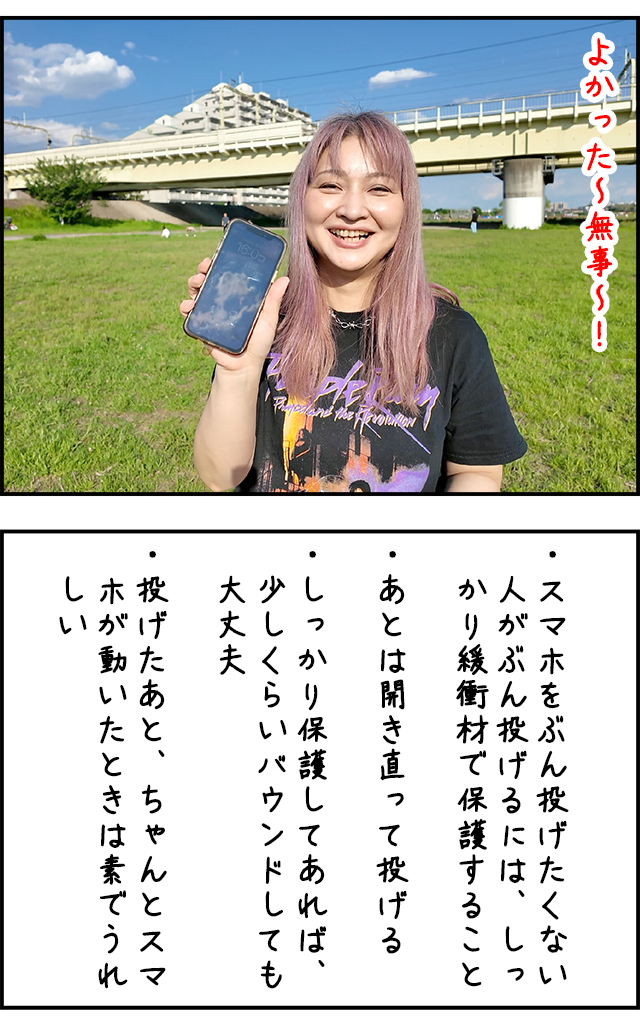 よかった〜無事〜！
16:05
Purple Rain
Prince and the Revolution
・スマホをぶん投げたくない
人がぶん投げるには、しっ
かり緩衝材で保護すること
・あとは開き直って投げる
・しっかり保護してあれば、
少しくらいバウンドしても
大丈夫
・投げたあと、ちゃんとスマ
ホが動いたときは素でうれ
しい